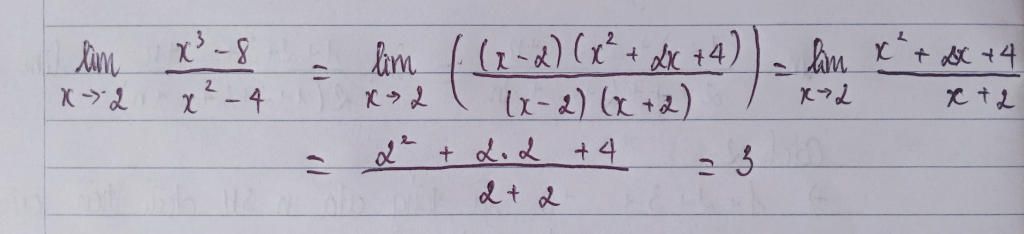 lim x→2 (x³ − 8)/(x² − 4) = lim x→2 ( ((x−2)(x² + 2x + 4))/((x−2)(x+2)) ) = lim x→2 (x² + 2x + 4)/(x + 2)
= (2² + 2.2 + 4)/(2 + 2) = 3